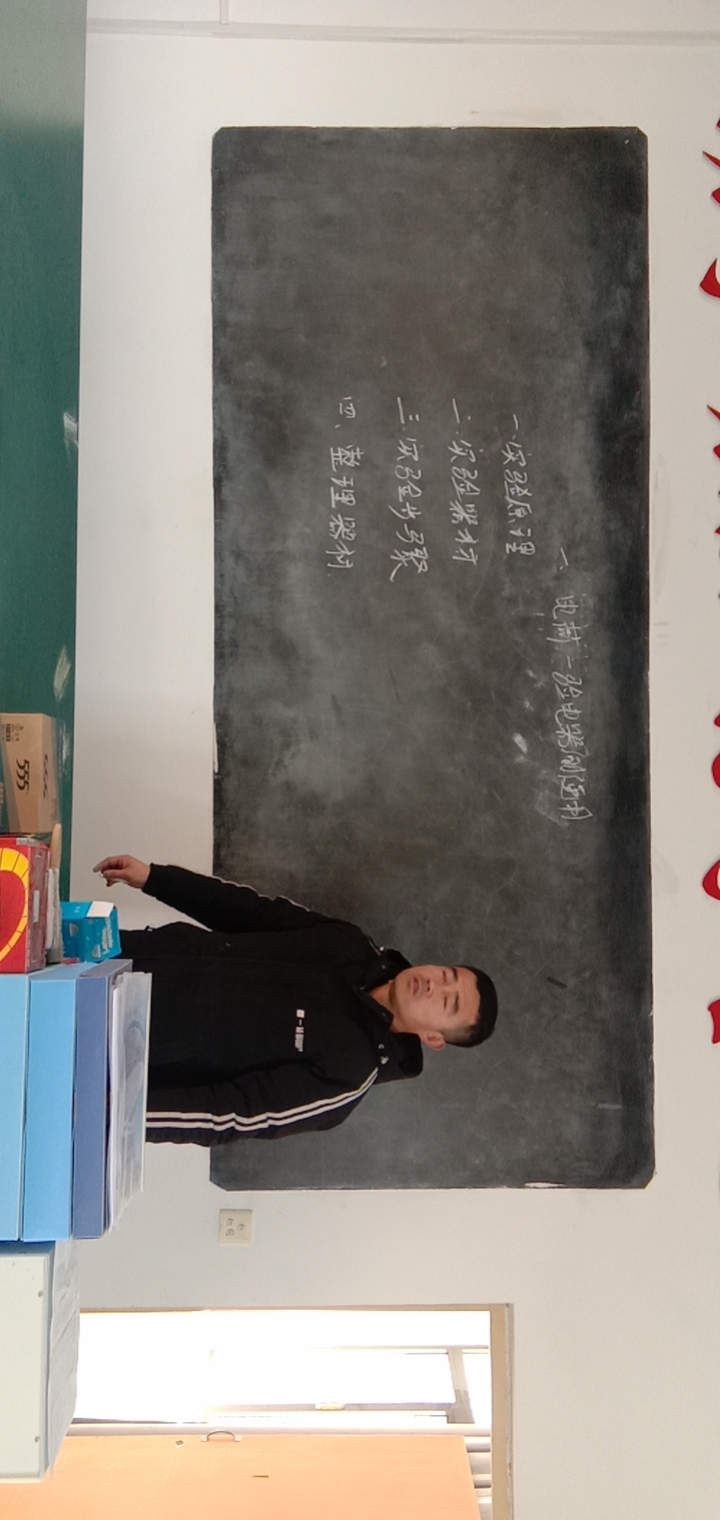 一、电荷 验电器的使用
一.实验原理
二.实验器材
三.实验步骤
四、整理器材.
555
555